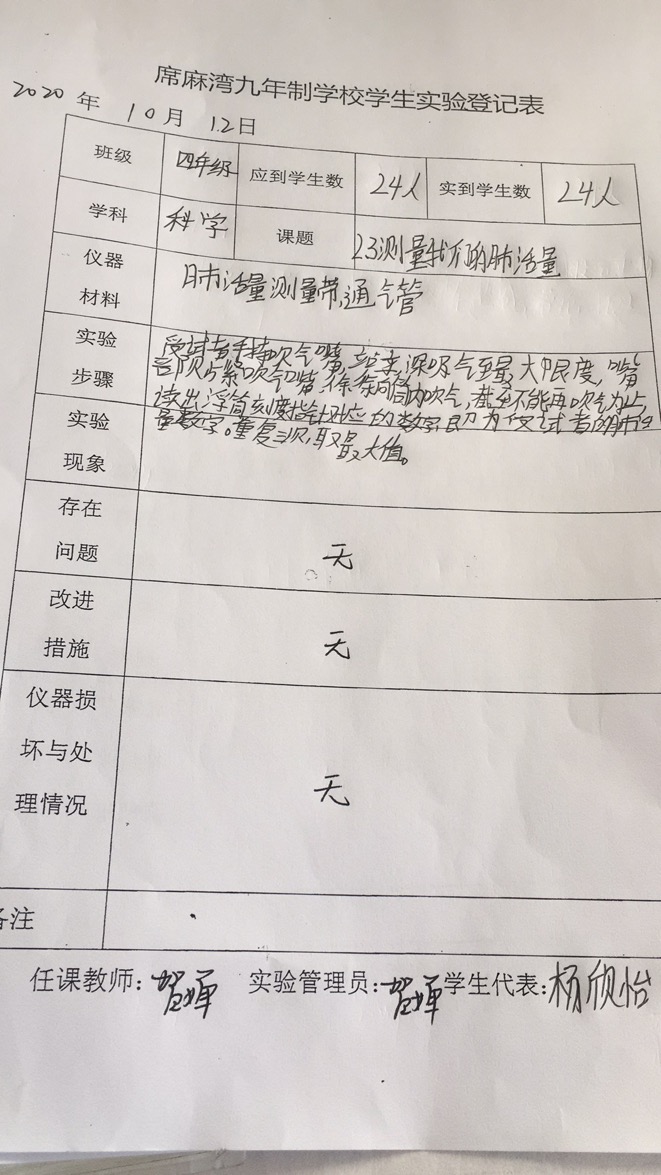 席麻湾九年制学校学生实验登记表
2020 年 10月 12日
班级 四年级 应到学生数 24人 实到学生数 24人
学科 科学 课题 2.3测量我们的肺活量
仪器材料 肺活量测量带,通气管
实验步骤
受试者手持吹气嘴,站来,深吸气至最大限度,嘴
部贴紧吹气嘴,徐徐向筒内吹气,截至不能再吹气为止
读出浮筒刻度指针对应的数字即为受试者的肺活
量数字。重复三次,取最大值。
实验现象
存在问题 无
改进措施 无
仪器损坏与处理情况 无
备注
任课教师: 实验管理员: 学生代表:杨欣怡